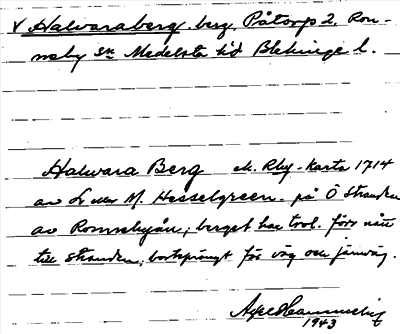 v Halvaraberg. berg. Påtorp 2. Ron-
neby sn Medelsta hd Blekinge l.
Halvara Berg ek. Rbg. Karta 1714
av M. Hesselgreen. på Ö Stranden
av Ronnebyån; berget har trol. förr nått
till stranden; bortsprängt för väg och järnväg.
Axel
1943